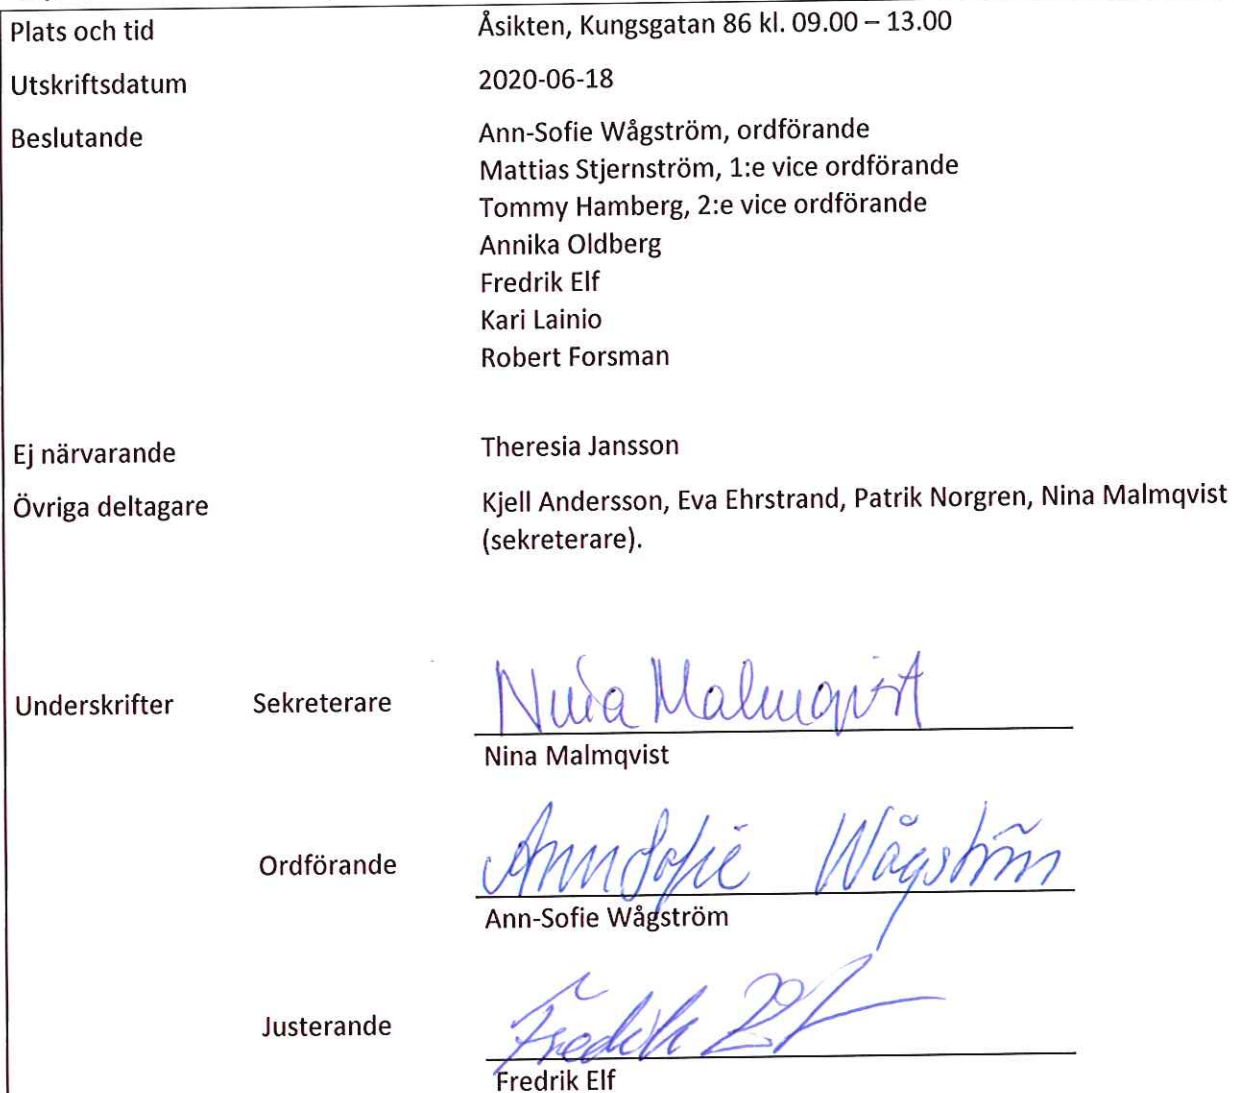 Plats och tid Åsikten, Kungsgatan 86 kl. 09.00 – 13.00
Utskriftsdatum 2020-06-18
Beslutande Ann-Sofie Wågström, ordförande
Mattias Stjernström, 1:e vice ordförande
Tommy Hamberg, 2:e vice ordförande
Annika Oldberg
Fredrik Elf
Kari Lainio
Robert Forsman
Ej närvarande Theresia Jansson
Övriga deltagare Kjell Andersson, Eva Ehrstrand, Patrik Norgren, Nina Malmqvist
(sekreterare).
Underskrifter Sekreterare Nina Malmqvist
Nina Malmqvist
Ordförande AnnSofie Wågström
Ann-Sofie Wågström
Justerande Fredrik Elf
Fredrik Elf